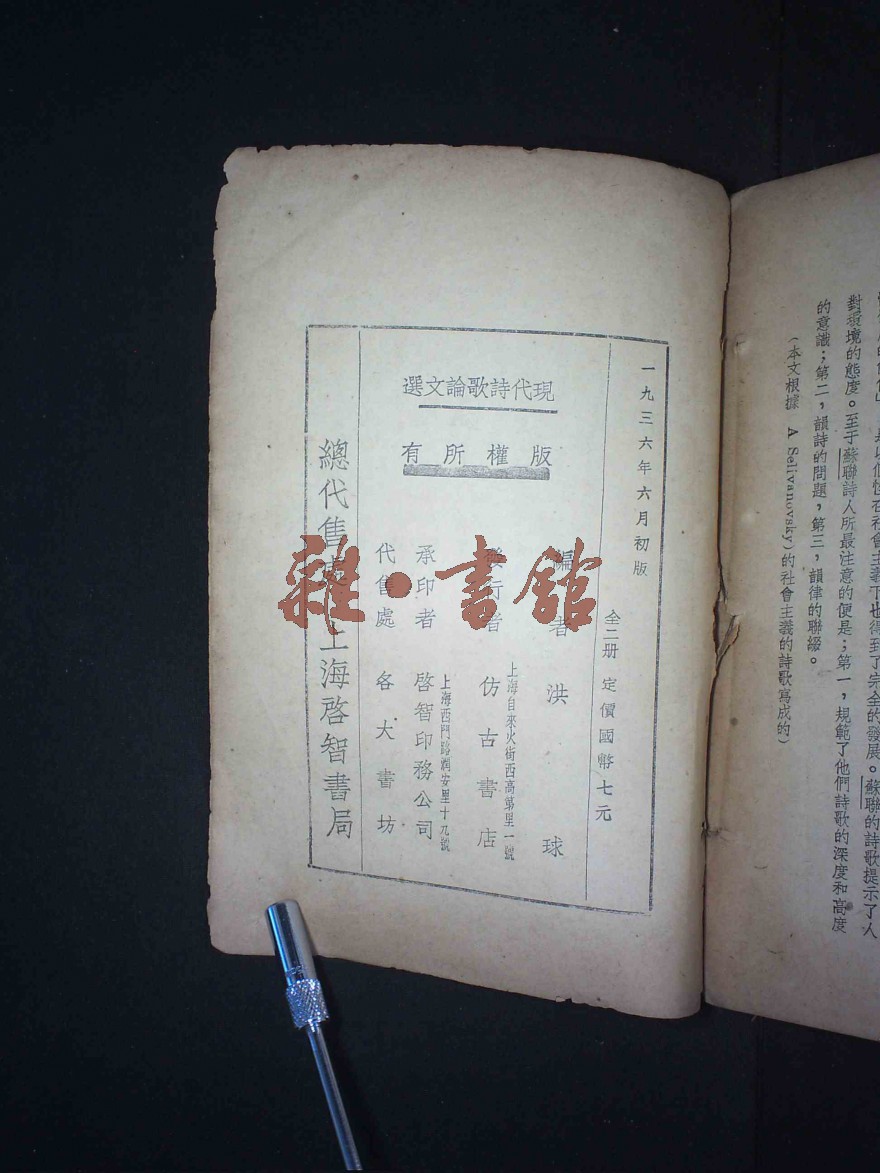 對環境的態度。至于蘇聯詩人所最注意的便是；第一，規範了他們詩歌的深度和高度
的意識；第二，韻詩的問題，第三，韻律的聯綴。
（本文根據 A Selivanovsky）的社會主義的詩歌寫成的）
一九三六年六月初版
全二册 定價國幣七元
現代詩歌論文選
版權所有
編者 洪球
發行者 仿古書店
上海自來火街西高第里一號
承印者 啓智印務公司
上海西門路潤安里十九號
代售處 各大書坊
總代售處 上海啓智書局
雜·書館